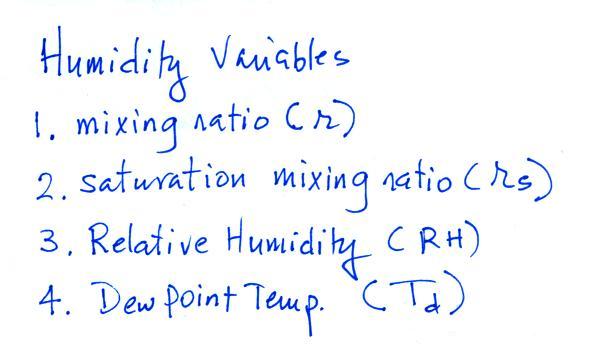 Humidity Variables
1. mixing ratio (r)
2. saturation mixing ratio (rs)
3. Relative Humidity (RH)
4. Dew point Temp. (Td)